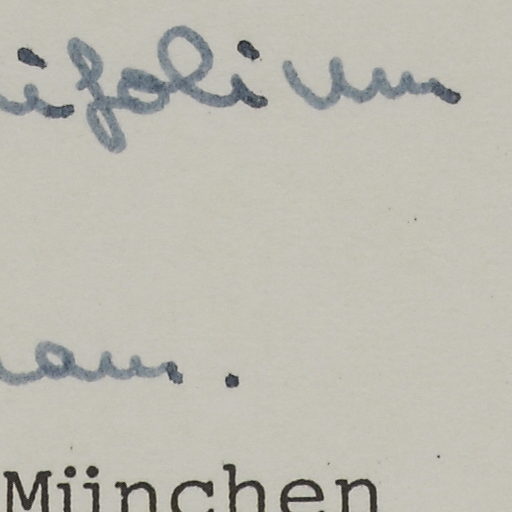 ifolium
München